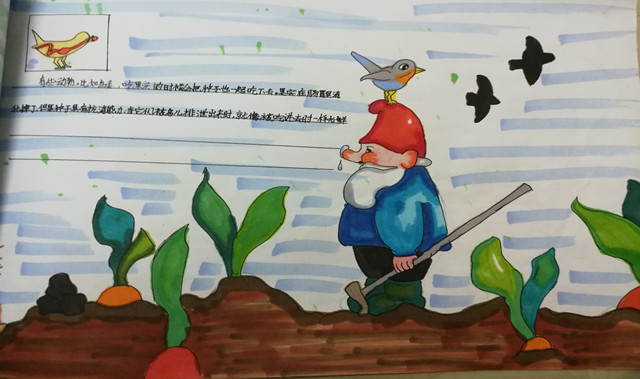 有些动物，比如鸟类，吃果实的时候会把种子也一起吃下去，果实在肠胃里消
化掉了，但是种子具有抗消能力，当它们随着鸟儿排泄出来时，就像被吃进去时一样新鲜